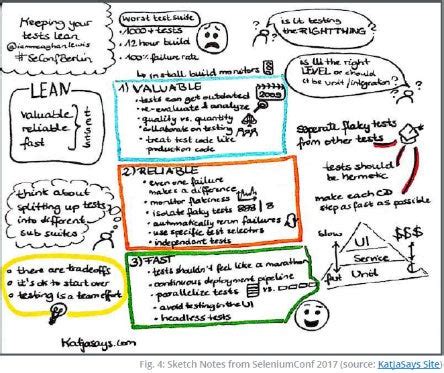 Keeping your
tests lean
@ionmeaghanlewis
#SeConfBerlin
Worst test suite
• 1000+ tests
• 12 hour build
• 100% failure rate
↳ install build monitors
is it testing
the RIGHT THING?
is it the right
LEVEL or should
it be unit/integration?
LEAN
valuable
reliable
fast
1) VALUABLE
• tests can get outdated
2009
• re-evaluate & analyze
• quality vs. quantity
• collaborate on testing
• treat test code like
production code
2) RELIABLE
• even one failure
makes a difference
• monitor flakiness
• isolate flaky tests
• automatically rerun failures
• use specific test selectors
• independent tests
3) FAST
• tests shouldn't feel like a marathon
• continuous deployment pipeline
• parallelize tests
vs.
• avoid testing in the UI
• headless tests
seperate flaky tests
from other tests
tests should
be hermetic
make each CD
step as fast as possible
slow
UI
$$$
Service
fast
Unit
think about
splitting up tests
into different
sub suites
• there are tradeoffs
• it's ok to start over
• testing is a team effort
Katjasays.com
Fig. 4: Sketch Notes from SeleniumConf 2017 (source: KatjaSays Site)